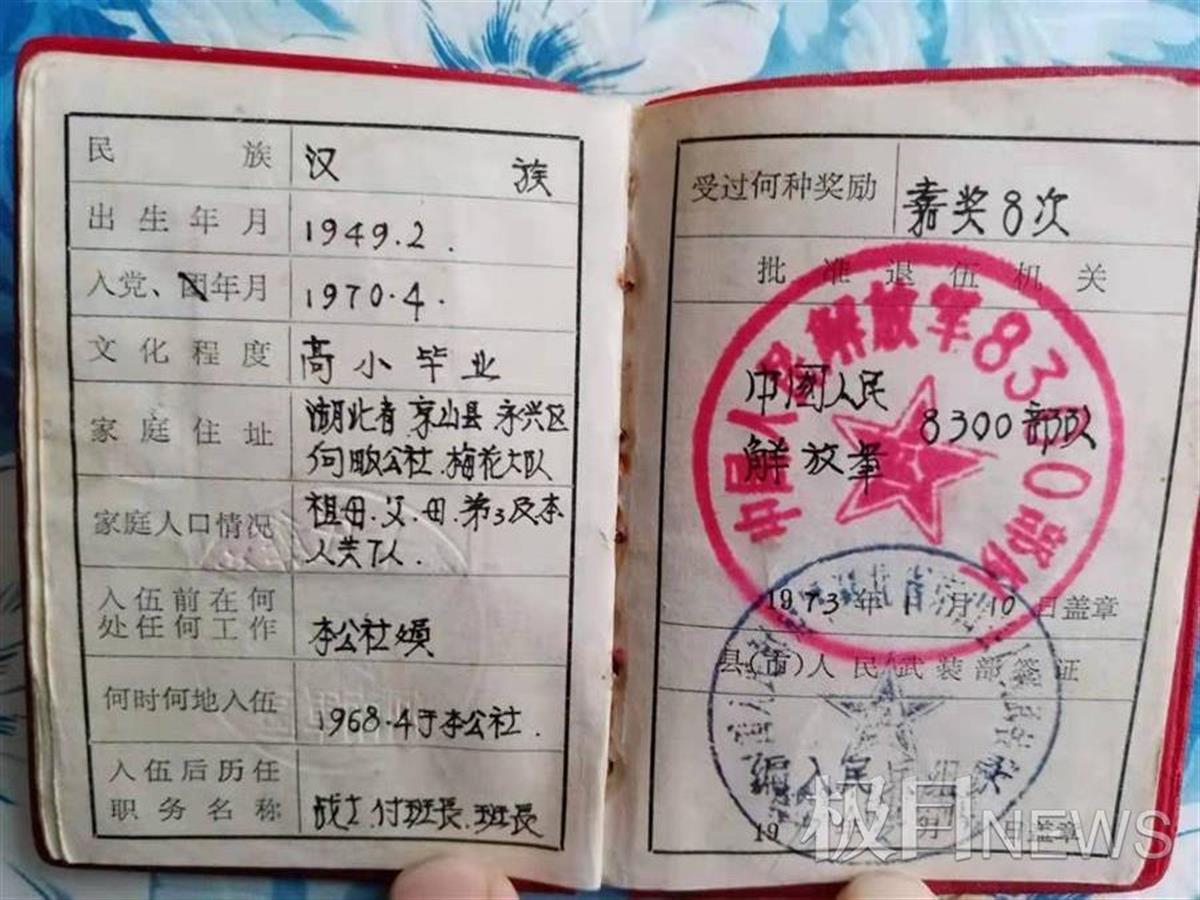 民族 汉族
出生年月 1949.2.
入党、团年月 1970.4.
文化程度 高小毕业
家庭住址 湖北省京山县永兴区
何畈公社.梅花大队
家庭人口情况 祖母.父.母.弟3及本
人共7人.
入伍前在何
处任何工作 本公社社员
何时何地入伍 1968.4于本公社.
入伍后历任
职务名称 战士.付班长.班長
受过何种奖励 嘉奖8次
批准退伍机关
中国人民解放军8300部队
中国人民
解放军 8300部队
1973年1月10日盖章
县(市)人民武装部签证
编入民兵组织
19 年 月 日盖章
极目NEWS